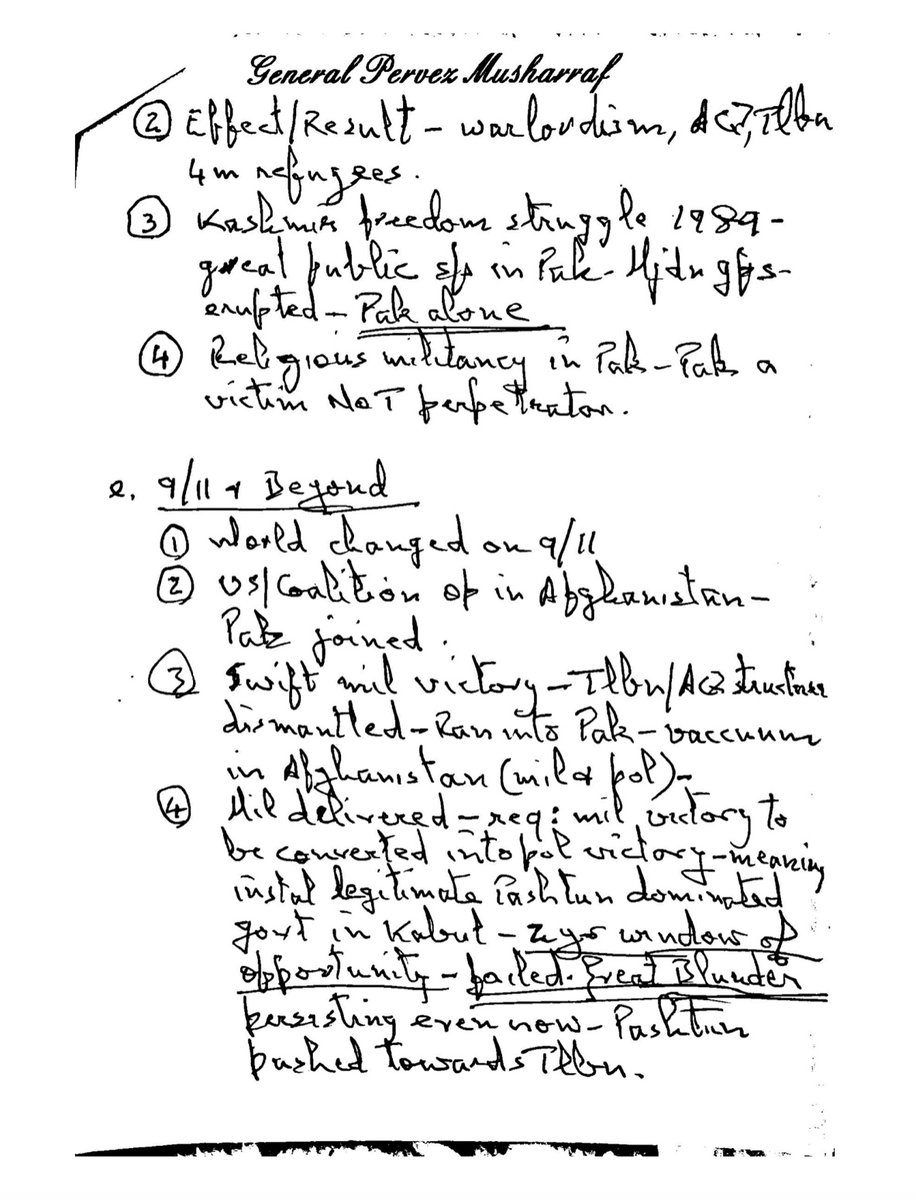 General Pervez Musharraf
② Effect/Result - warlordism, AQ, Tlbn
4m refugees.
③ Kashmir freedom struggle 1989-
great public sp in Pak - Mjdn gps-
erupted - Pak alone
④ Religious militancy in Pak - Pak a
victim NOT perpetrator.
e. 9/11 & Beyond
① World changed on 9/11
② US/Coalition op in Afghanistan -
Pak joined.
③ Swift mil victory - Tlbn/AQ structures
dismantled - Ran into Pak - vaccuum
in Afghanistan (mil & pol) -
④ Mil delivered - req: mil victory to
be converted into pol victory - meaning
instal legitimate Pashtun dominated
govt in Kabul - 2 yr window of
opportunity - failed. Great Blunder
persisting even now - Pashtun
pushed towards Tlbn.